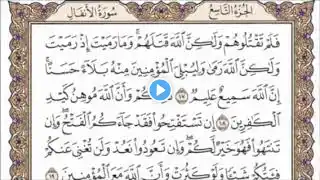 الجزء التاسع
سورة الأنفال
فَلَمْ تَقْتُلُوهُمْ وَلَٰكِنَّ ٱللَّهَ قَتَلَهُمْ وَمَا رَمَيْتَ إِذْ رَمَيْتَ
وَلَٰكِنَّ ٱللَّهَ رَمَىٰ وَلِيُبْلِىَ ٱلْمُؤْمِنِينَ مِنْهُ بَلَآءً حَسَنًا
إِنَّ ٱللَّهَ سَمِيعٌ عَلِيمٌ ١٧ ذَٰلِكُمْ وَأَنَّ ٱللَّهَ مُوهِنُ كَيْدِ
ٱلْكَٰفِرِينَ ١٨ إِن تَسْتَفْتِحُوا۟ فَقَدْ جَآءَكُمُ ٱلْفَتْحُ وَإِن
تَنتَهُوا۟ فَهُوَ خَيْرٌ لَّكُمْ وَإِن تَعُودُوا۟ نَعُدْ وَلَن تُغْنِىَ عَنكُمْ
فِئَتُكُمْ شَيْـًٔا وَلَوْ كَثُرَتْ وَأَنَّ ٱللَّهَ مَعَ ٱلْمُؤْمِنِينَ ١٩